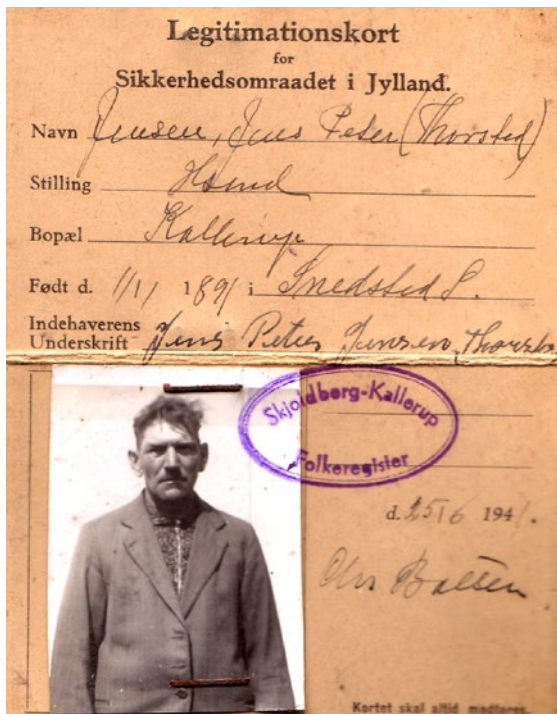 Legitimationskort
for
Sikkerhedsomraadet i Jylland.
Navn Jensen, Jens Peter (Thorsted)
Stilling
Bopæl Kallerup
Født d. 1/1 1891 i Snedsted S.
Indehaverens
Underskrift Jens Peter Jensen, Thorsted
Skjoldborg-Kallerup
Folkeregister
d. 25/6 1941.
Chr
Kortet skal altid medføres.